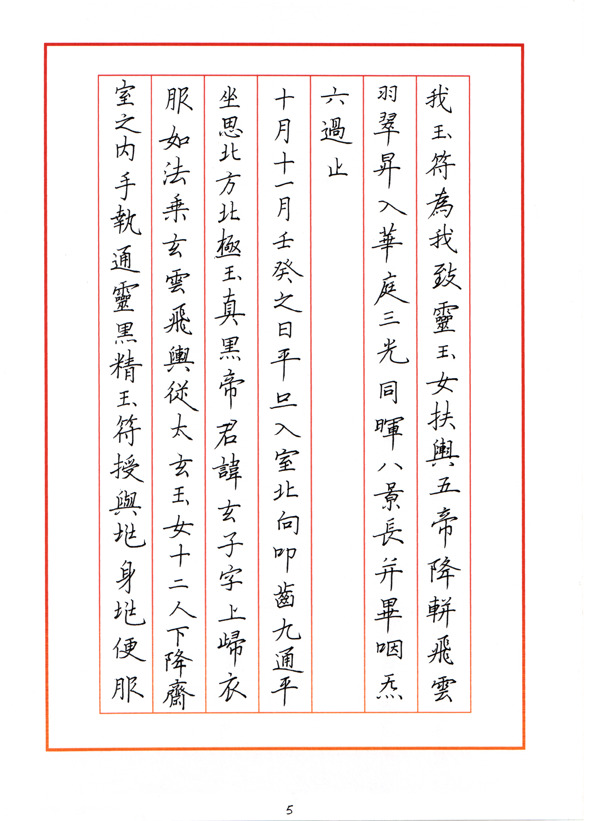 我玉符為我致靈玉女扶輿五帝降軿飛雲
羽翠昇入華庭三光同暉八景長并畢咽炁
六過止
十月十一月壬癸之日平旦入室北向叩齒九通平
坐思北方北極玉真黑帝君諱玄子字上歸衣
服如法乘玄雲飛輿從太玄玉女十二人下降齋
室之內手執通靈黑精玉符授與兆身兆便服
5